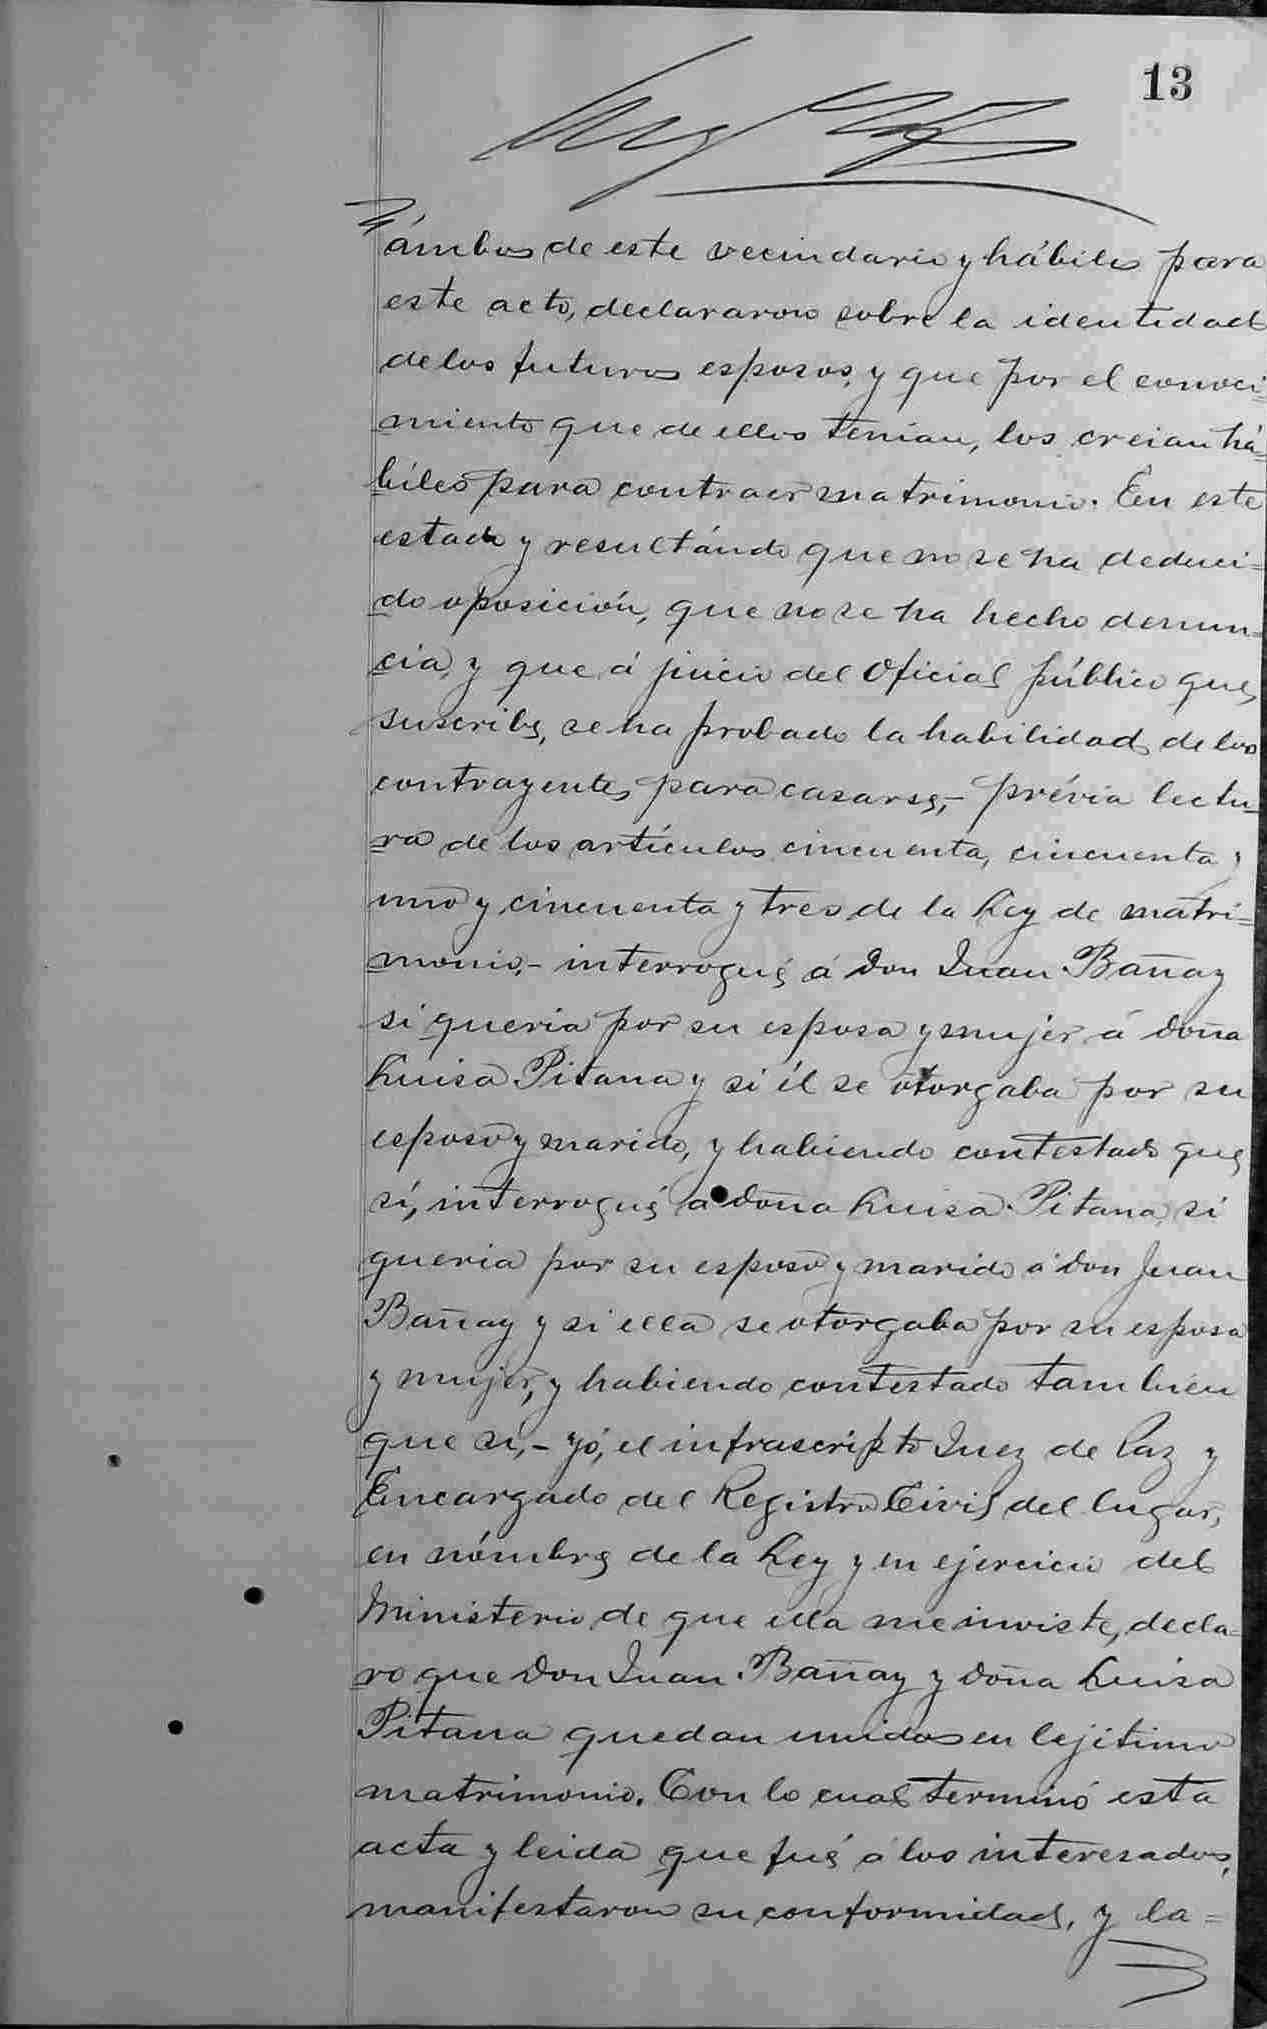 13
ámbos de este vecindario y hábiles para
este acto, declararon sobre la identidad
de los futuros esposos, y que por el conoci=
miento que de ellos tenian, los creian há=
biles para contraer matrimonio. En este
estado y resultándo que no se ha deduci=
do oposición, que no se ha hecho denun=
cia, y que á juicio del Oficial público que
suscribe, se ha probado la habilidad de los
contrayentes para casarse,- prévia lectu=
ra de los artículos cincuenta, cincuenta y
uno y cincuenta y tres de la Ley de matri=
monio,- interrogué á Don Juan Bañay
si queria por su esposa y mujer á doña
Luisa Pitana y si él se otorgaba por su
esposo y marido, y habiendo contestado que
sí, interrogué a doña Luisa Pitana, si
queria por su esposo y marido á don Juan
Bañay y si ella se otorgaba por su esposa
y mujer, y habiendo contestado tambien
que si,- yó, el infrascripto Juez de Paz y
Encargado del Registro Civil del lugar,
en nómbre de la Ley y en ejercicio del
Ministerio de que ella me inviste, decla=
ro que Don Juan Bañay y doña Luisa
Pitana quedan unidos en lejitimo
matrimonio. Con lo cual terminó esta
acta y leida que fué á los interesados,
manifestaron su conformidad, y la=